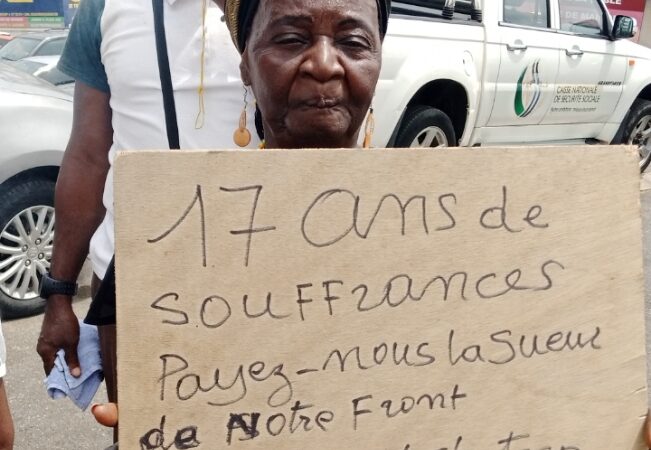 17 ans de
souffrances
Payez-nous la sueur
de Notre Front
CAISSE NATIONALE
DE SECURITE SOCIALE